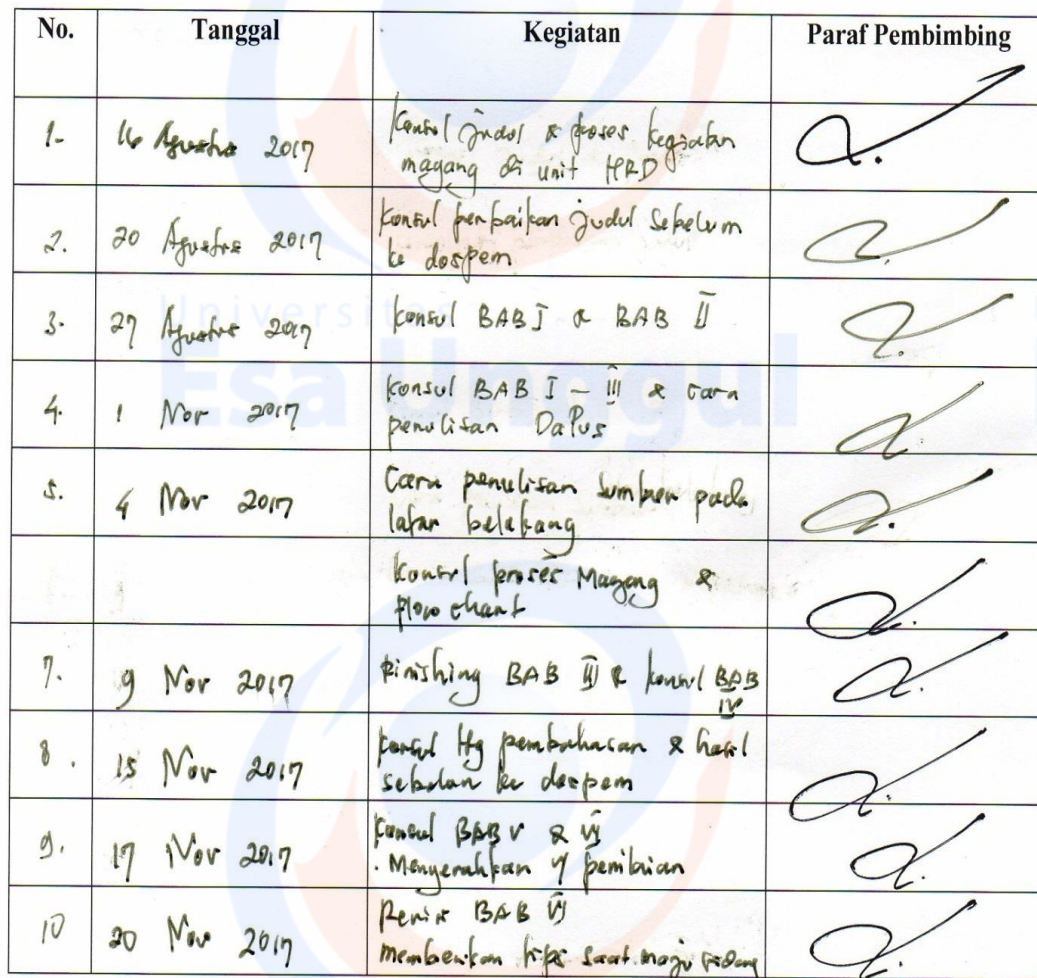 No. Tanggal Kegiatan Paraf Pembimbing
1. 16 Agustus 2017 Konsul Judul & proses kegiatan
magang di unit HRD
2. 20 Agustus 2017 Konsul perbaikan judul sebelum
ke dospem
3. 27 Agustus 2017 Konsul BAB I & BAB II
Universitas
Esa Unggul
4. 1 Nov 2017 Konsul BAB I - III & cara
penulisan DaPus
5. 4 Nov 2017 Cara penulisan sumber pada
latar belakang
Konsul proses Magang &
flow chart
7. 9 Nov 2017 Finishing BAB III & konsul BAB
IV
8. 15 Nov 2017 Konsul ttg pembahasan & hasil
sebelum ke dospem
9. 17 Nov 2017 Konsul BAB V & VI
. Menyerahkan penilaian
10 20 Nov 2017 Revisi BAB VI
memberikan tips saat maju sidang